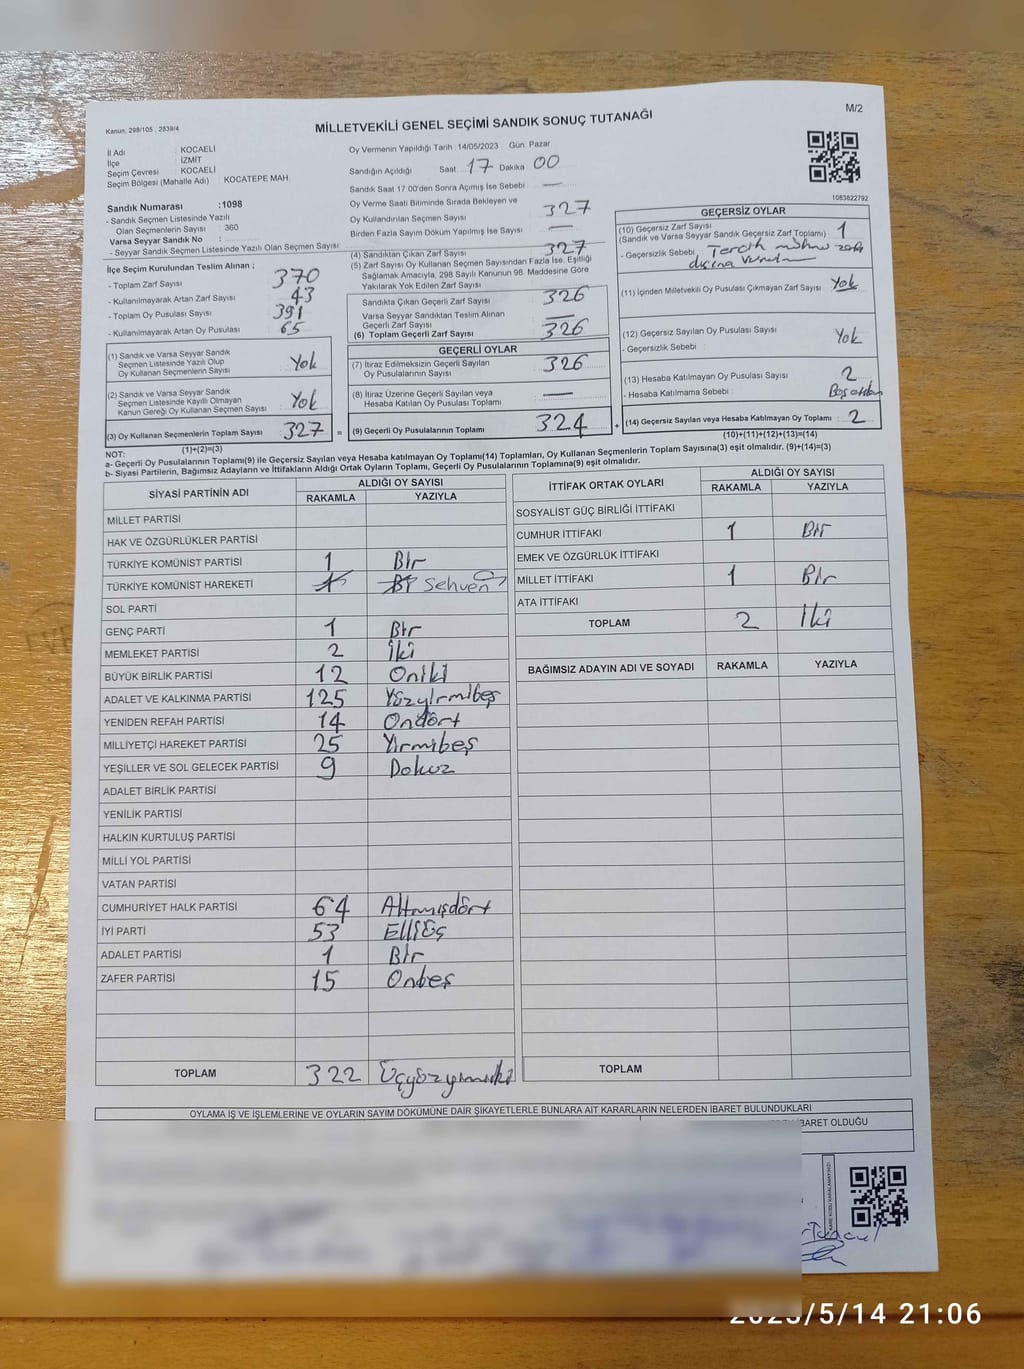 Kanun: 298/105 , 2839/4
MİLLETVEKİLİ GENEL SEÇİMİ SANDIK SONUÇ TUTANAĞI
M/2
İl Adı : KOCAELİ
İlçe : İZMİT
Seçim Çevresi : KOCAELİ
Seçim Bölgesi (Mahalle Adı) : KOCATEPE MAH.
Sandık Numarası :1098
- Sandık Seçmen Listesinde Yazılı
Olan Seçmenlerin Sayısı : 360
Varsa Seyyar Sandık No :
- Seyyar Sandık Seçmen Listesinde Yazılı Olan Seçmen Sayısı :
Oy Vermenin Yapıldığı Tarih :14/05/2023 Gün: Pazar
Sandığın Açıldığı Saat 17 Dakika 00
Sandık Saat 17.00'den Sonra Açımış İse Sebebi : —
Oy Verme Saati Bitiminde Sırada Bekleyen ve
Oy Kullandırılan Seçmen Sayısı : 327
Birden Fazla Sayım Döküm Yapılmış İse Sayısı : —
1083822792
İlçe Seçim Kurulundan Teslim Alınan ;
- Toplam Zarf Sayısı : 370
- Kullanılmayarak Artan Zarf Sayısı : 43
- Toplam Oy Pusulası Sayısı : 391
- Kullanılmayarak Artan Oy Pusulası : 65
(1) Sandık ve Varsa Seyyar Sandık
Seçmen Listesinde Yazılı Olup
Oy Kullanan Seçmenlerin Sayısı : Yok
(2) Sandık ve Varsa Seyyar Sandık
Seçmen Listesinde Kayıtlı Olmayan
Kanun Gereği Oy Kullanan Seçmen Sayısı : Yok
(3) Oy Kullanan Seçmenlerin Toplam Sayısı : 327 =
(1)+(2)=(3)
(4) Sandıktan Çıkan Zarf Sayısı : 327
(5) Zarf Sayısı Oy Kullanan Seçmen Sayısından Fazla İse, Eşitliği
Sağlamak Amacıyla, 298 Sayılı Kanunun 98. Maddesine Göre
Yakılarak Yok Edilen Zarf Sayısı :
Sandıkta Çıkan Geçerli Zarf Sayısı : 326
Varsa Seyyar Sandıktan Teslim Alınan
Geçerli Zarf Sayısı : —
(6) Toplam Geçerli Zarf Sayısı : 326
GEÇERLİ OYLAR
(7) İtiraz Edilmeksizin Geçerli Sayılan
Oy Pusulalarının Sayısı : 326
(8) İtiraz Üzerine Geçerli Sayılan veya
Hesaba Katılan Oy Pusulası Toplamı : —
(9) Geçerli Oy Pusulalarının Toplamı : 324 +
GEÇERSİZ OYLAR
(10) Geçersiz Zarf Sayısı
(Sandık ve Varsa Seyyar Sandık Geçersiz Zarf Toplamı) : 1
- Geçersizlik Sebebi : Tercih mührü zarf
dışına
(11) İçinden Milletvekili Oy Pusulası Çıkmayan Zarf Sayısı : Yok
(12) Geçersiz Sayılan Oy Pusulası Sayısı : Yok
- Geçersizlik Sebebi :
(13) Hesaba Katılmayan Oy Pusulası Sayısı : 2
- Hesaba Katılmama Sebebi : Boş
(14) Geçersiz Sayılan veya Hesaba Katılmayan Oy Toplamı : 2
(10)+(11)+(12)+(13)=(14)
NOT:
a- Geçerli Oy Pusulalarının Toplamı(9) ile Geçersiz Sayılan veya Hesaba katılmayan Oy Toplamı(14) Toplamları, Oy Kullanan Seçmenlerin Toplam Sayısına(3) eşit olmalıdır. (9)+(14)=(3)
b- Siyasi Partilerin, Bağımsız Adayların ve İttifakların Aldığı Ortak Oyların Toplamı, Geçerli Oy Pusulalarının Toplamına(9) eşit olmalıdır.
SİYASİ PARTİNİN ADI ALDIĞI OY SAYISI
RAKAMLA YAZIYLA
MİLLET PARTİSİ
HAK VE ÖZGÜRLÜKLER PARTİSİ
TÜRKİYE KOMÜNİST PARTİSİ 1 Bir
TÜRKİYE KOMÜNİST HAREKETİ 1 Bi Sehven
SOL PARTİ
GENÇ PARTİ 1 Bir
MEMLEKET PARTİSİ 2 İki
BÜYÜK BİRLİK PARTİSİ 12 Oniki
ADALET VE KALKINMA PARTİSİ 125 Yüzyirmibeş
YENİDEN REFAH PARTİSİ 14 Ondört
MİLLİYETÇİ HAREKET PARTİSİ 25 Yirmibeş
YEŞİLLER VE SOL GELECEK PARTİSİ 9 Dokuz
ADALET BİRLİK PARTİSİ
YENİLİK PARTİSİ
HALKIN KURTULUŞ PARTİSİ
MİLLİ YOL PARTİSİ
VATAN PARTİSİ
CUMHURİYET HALK PARTİSİ 64 Altmışdört
İYİ PARTİ 53 Elliüç
ADALET PARTİSİ 1 Bir
ZAFER PARTİSİ 15 Onbeş
TOPLAM 322 Üçyüzyirmiiki
İTTİFAK ORTAK OYLARI ALDIĞI OY SAYISI
RAKAMLA YAZIYLA
SOSYALİST GÜÇ BİRLİĞİ İTTİFAKI
CUMHUR İTTİFAKI 1 Bir
EMEK VE ÖZGÜRLÜK İTTİFAKI
MİLLET İTTİFAKI 1 Bir
ATA İTTİFAKI
TOPLAM 2 İki
BAĞIMSIZ ADAYIN ADI VE SOYADI RAKAMLA YAZIYLA
TOPLAM
OYLAMA İŞ VE İŞLEMLERİNE VE OYLARIN SAYIM DÖKÜMÜNE DAİR ŞİKAYETLERLE BUNLARA AİT KARARLARIN NELERDEN İBARET BULUNDUKLARI
İBARET OLDUĞU
2023/5/14 21:06